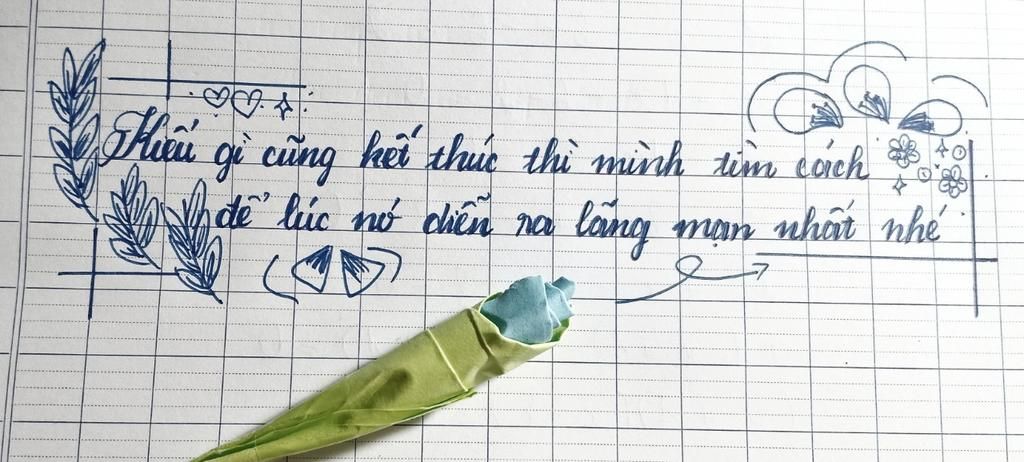 Kiểu gì cũng kết thúc thì mình tìm cách
để lúc nó diễn ra lãng mạn nhất nhé